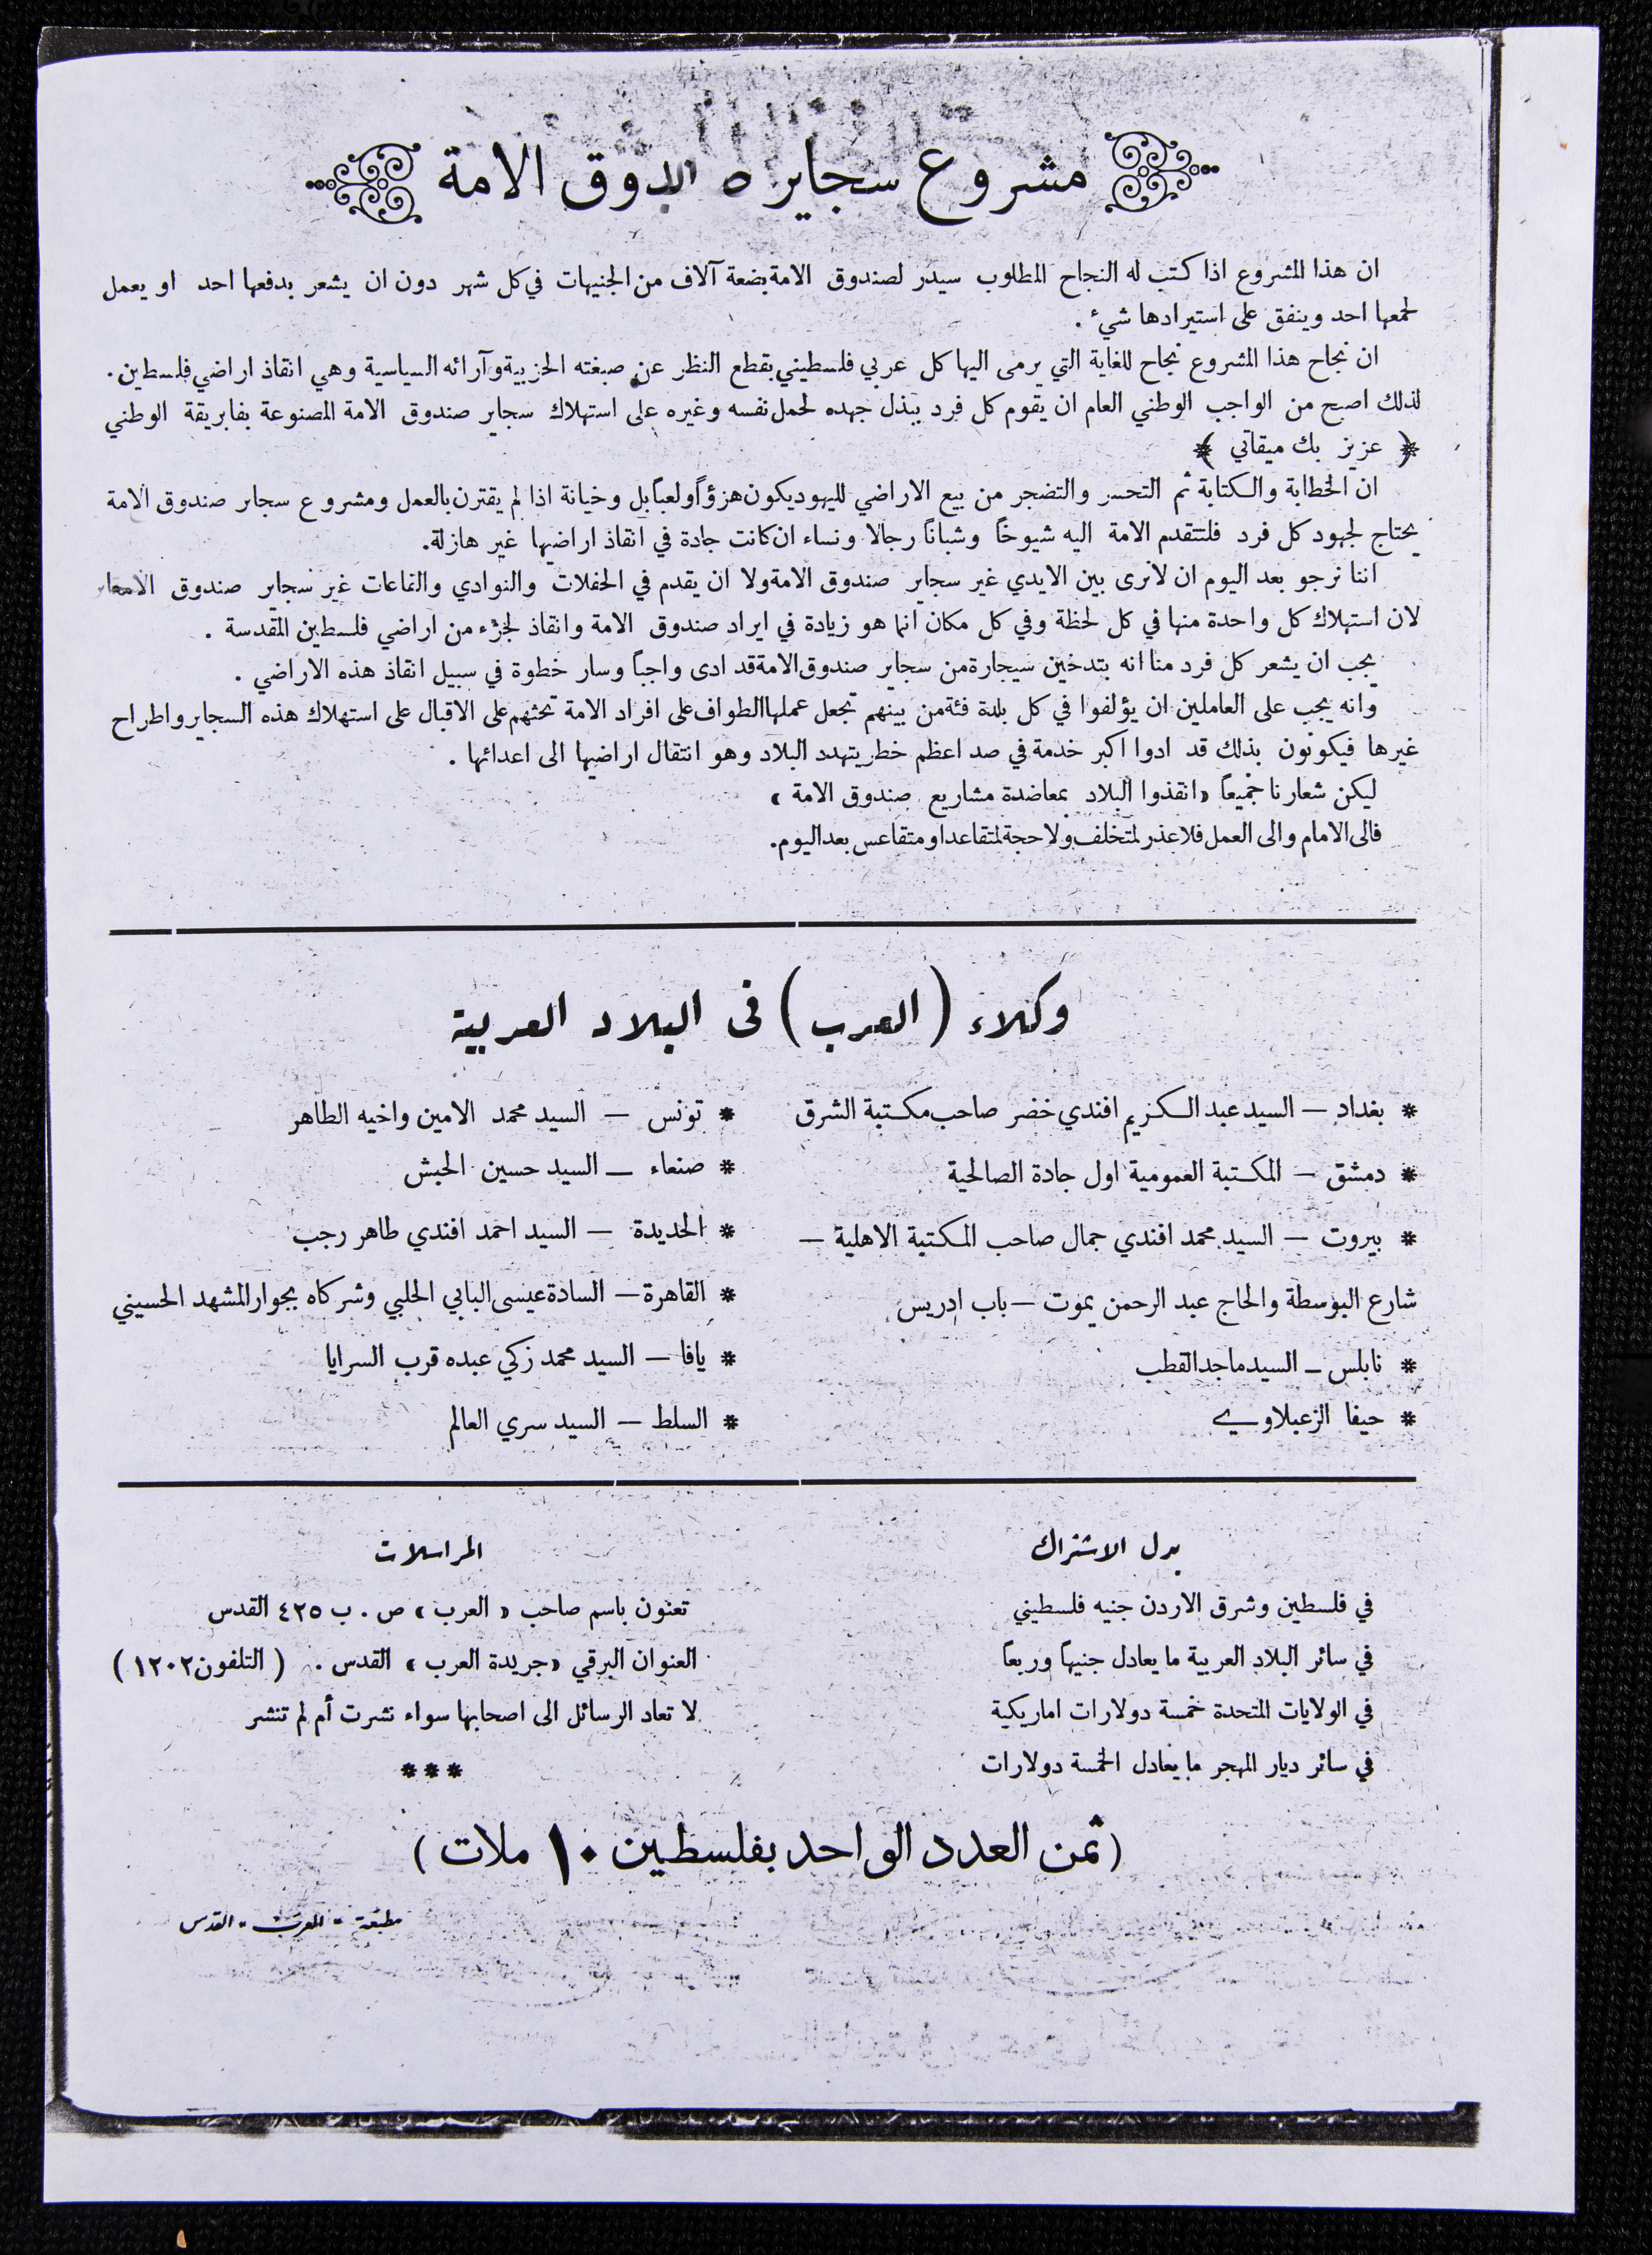 مشروع سجاير صندوق الامة
ان هذا المشروع اذا كتب له النجاح المطلوب سيدر لصندوق الامة بضعة آلاف من الجنيهات في كل شهر دون ان يشعر بدفعها احد او يعمل
لجمعها احد وينفق على استيرادها شيء .
ان نجاح هذا المشروع نجاح للغاية التي يرمى اليها كل عربي فلسطيني بقطع النظر عن صبغته الحزبية وآرائه السياسية وهي انقاذ اراضي فلسطين .
لذلك اصبح من الواجب الوطني العام ان يقوم كل فرد ببذل جهده لحمل نفسه وغيره على استهلاك سجاير صندوق الامة المصنوعة بفابريقة الوطني
﴿ عزيز بك ميقاتي ﴾
ان الخطابة والكتابة ثم التحسر والتضجر من بيع الاراضي لليهود يكون هزؤاً ولعباً بل وخيانة اذا لم يقترن بالعمل ومشروع سجاير صندوق الامة
يحتاج لجهود كل فرد فلتتقدم الامة اليه شيوخاً وشباناً رجالا ونساء ان كانت جادة في انقاذ اراضيها غير هازلة .
اننا نرجو بعد اليوم ان لا نرى بين الايدي غير سجاير صندوق الامة ولا ان يقدم في الحفلات والنوادي والقاعات غير سجاير صندوق
لان استهلاك كل واحدة منها في كل لحظة وفي كل مكان انما هو زيادة في ايراد صندوق الامة وانقاذ لجزء من اراضي فلسطين المقدسة .
يجب ان يشعر كل فرد منا انه بتدخين سيجارة من سجاير صندوق الامة قد ادى واجباً وسار خطوة في سبيل انقاذ هذه الاراضي .
وانه يجب على العاملين ان يؤلفوا في كل بلدة فئة من بينهم تجعل عملها الطواف على افراد الامة تحثهم على الاقبال على استهلاك هذه السجاير واطراح
غيرها فيكونون بذلك قد ادوا اكبر خدمة في صد اعظم خطر يتهدد البلاد وهو انتقال اراضيها الى اعدائها .
ليكن شعارنا جميعاً « انقذوا البلاد بمعاضدة مشاريع صندوق الامة »
فالى الامام والى العمل فلا عذر لمتخلف ولا حجة لمتقاعد او متقاعس بعد اليوم .
وكلاء ( العرب ) فى البلاد العربية
* بغداد — السيد عبد الكريم افندي خضر صاحب مكتبة الشرق
* دمشق — المكتبة العمومية اول جادة الصالحية
* بيروت — السيد محمد افندي جمال صاحب المكتبة الاهلية —
شارع البوسطة والحاج عبد الرحمن يموت — باب ادريس
* نابلس — السيد ماجد القطب
* حيفا الزعبلاوي
* تونس — السيد محمد الامين واخيه الطاهر
* صنعاء — السيد حسين الحبش
* الحديدة — السيد احمد افندي طاهر رجب
* القاهرة — السادة عيسى البابي الحلبي وشركاه بجوار المشهد الحسيني
* يافا — السيد محمد زكي عبده قرب السرايا
* السلط — السيد سري العالم
بدل الاشتراك
في فلسطين وشرق الاردن جنيه فلسطيني
في سائر البلاد العربية ما يعادل جنيهاً وربعاً
في الولايات المتحدة خمسة دولارات اماريكية
في سائر ديار المهجر ما يعادل الخمسة دولارات
المراسلات
تعنون باسم صاحب « العرب » ص . ب ٤٢٥ القدس
العنوان البرقي « جريدة العرب » القدس . ( التلفون ١٢٠٢ )
لا تعاد الرسائل الى اصحابها سواء نشرت أم لم تنشر
***
( ثمن العدد الواحد بفلسطين ١٠ ملات )
مطبعة - العرب - القدس